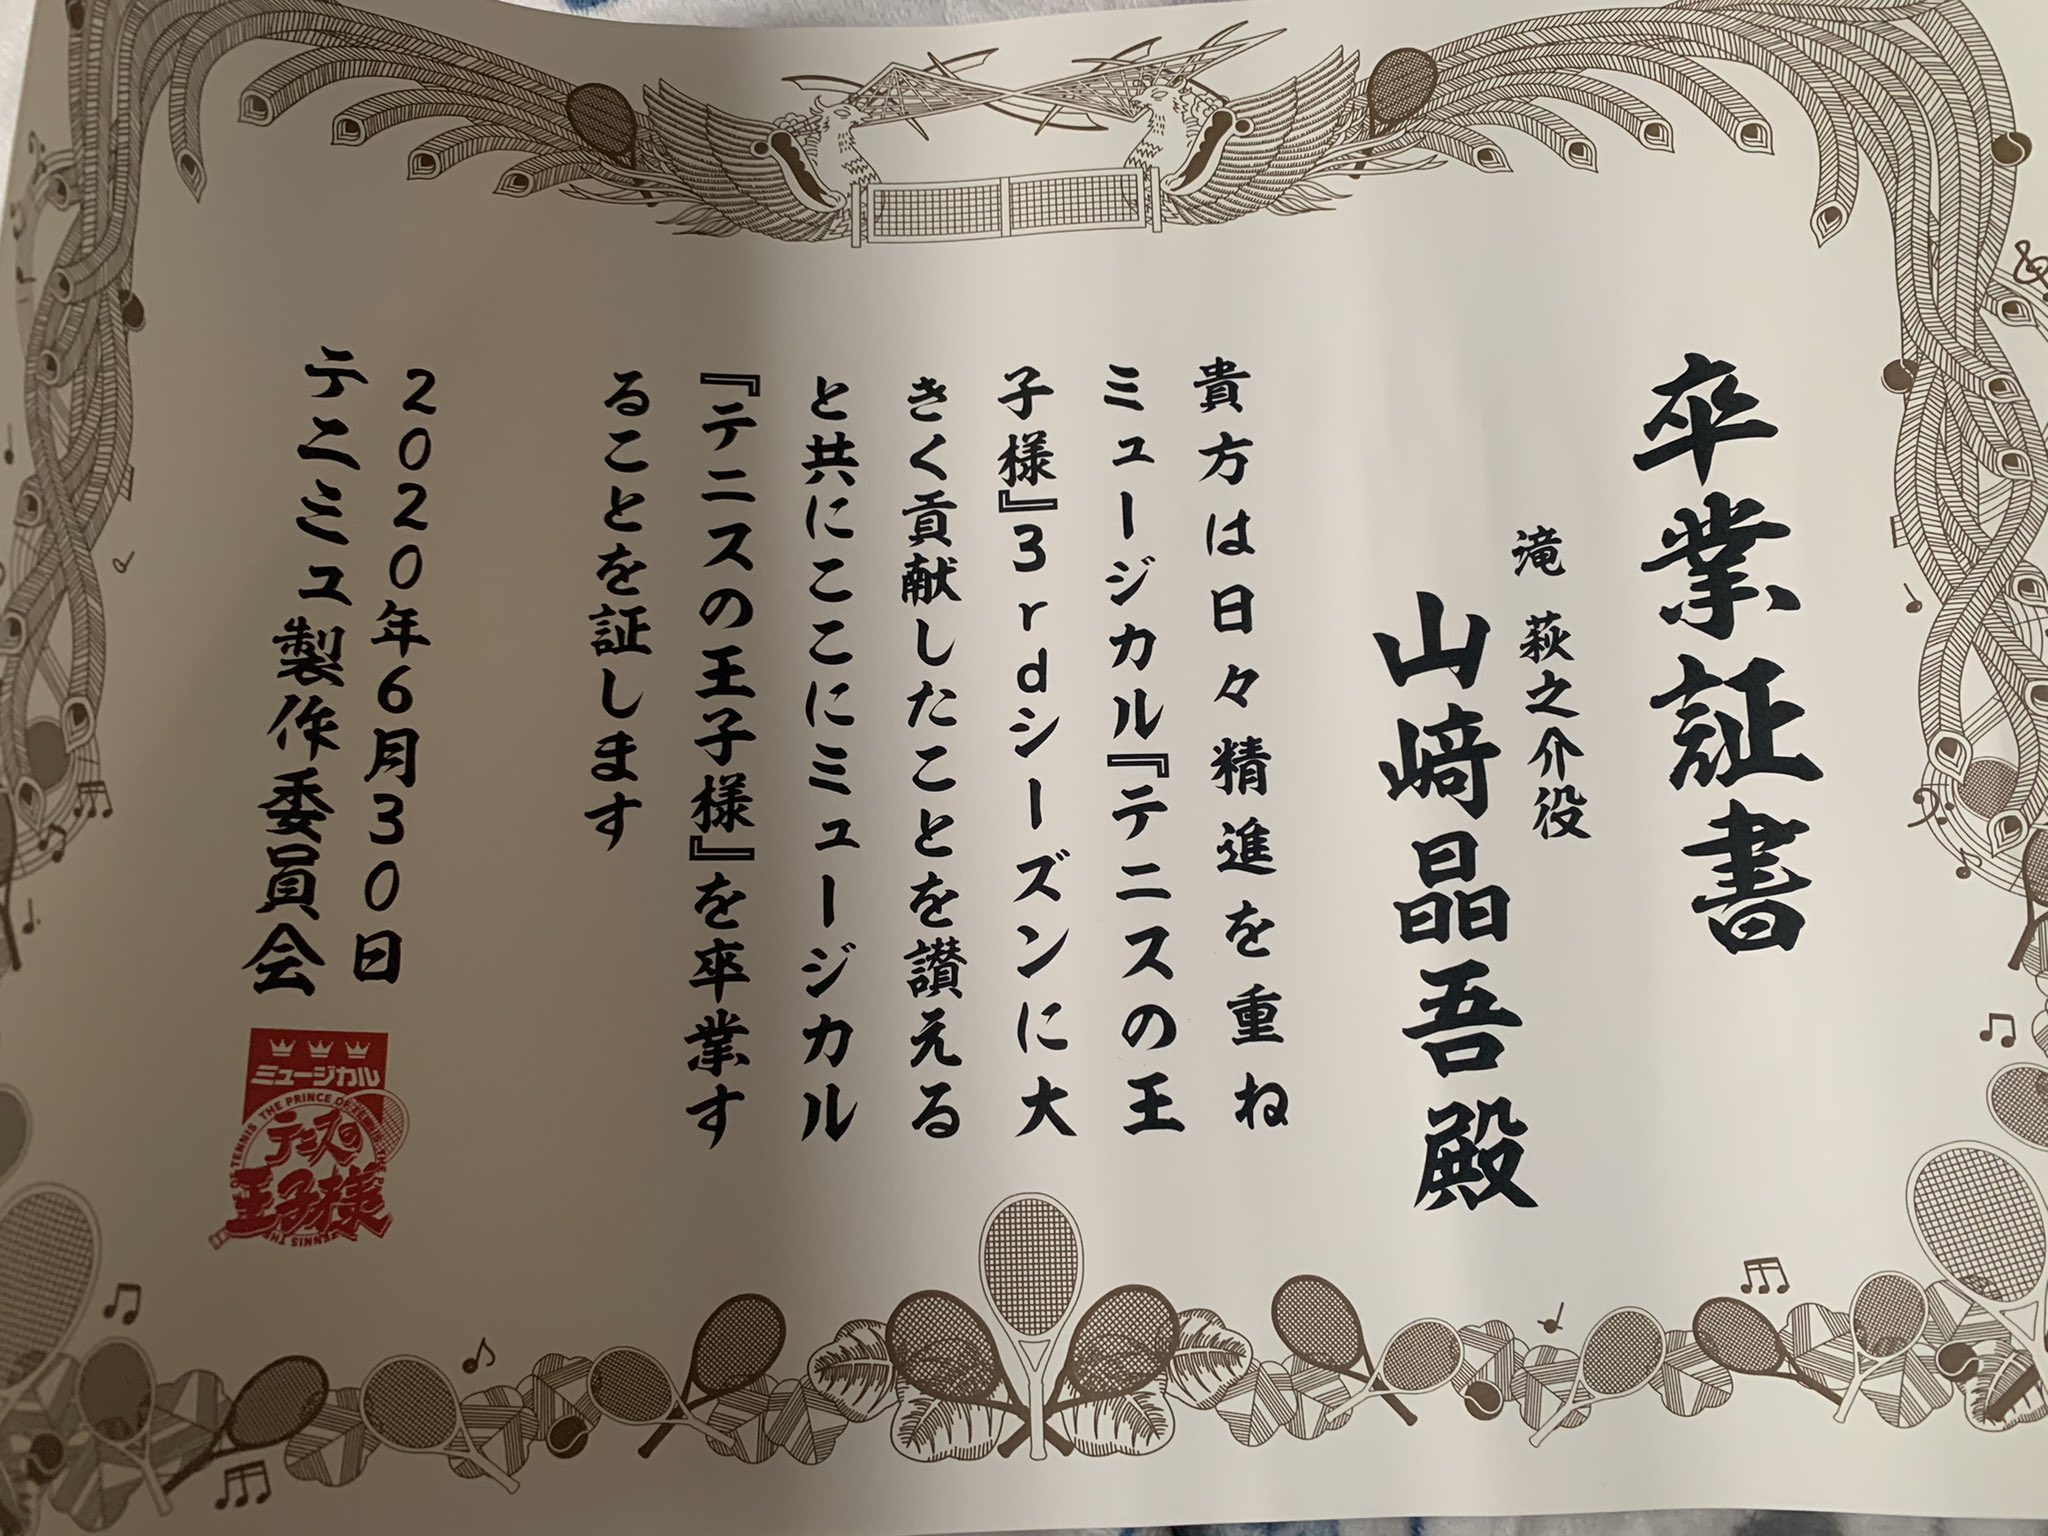 卒業証書
滝 萩之介役
山﨑晶吾殿
貴方は日々精進を重ね
ミュージカル『テニスの王
子様』3rdシーズンに大
きく貢献したことを讃える
と共にここにミュージカル
『テニスの王子様』を卒業す
ることを証します
2020年6月30日
テニミュ製作委員会
ミュージカル
テニスの
王子様